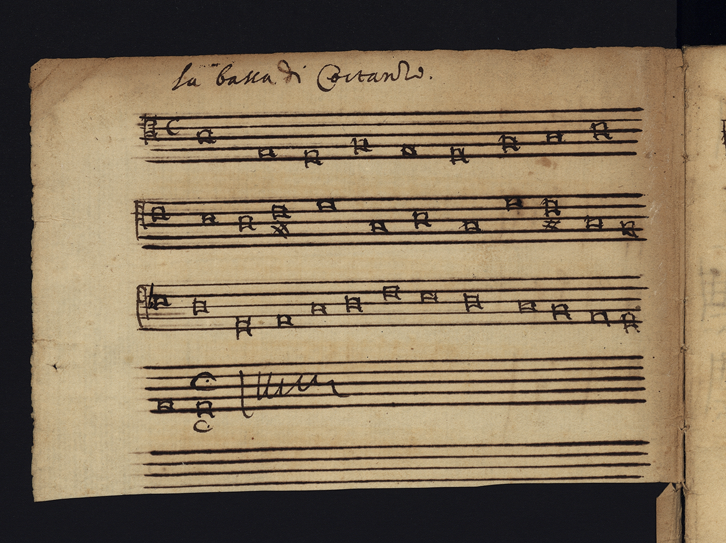 La bassa di Costanzo.